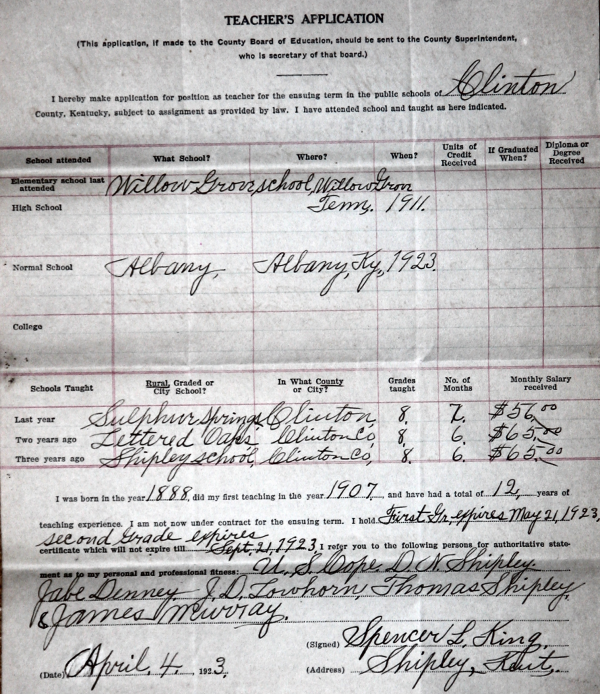 TEACHER'S APPLICATION
(This application, if made to the County Board of Education, should be sent to the County Superintendent,
who is secretary of that board.)
I hereby make application for position as teacher for the ensuing term in the public schools of Clinton
County, Kentucky, subject to assignment as provided by law. I have attended school and taught as here indicated.
School attended What School? Where? When? Units of Credit Received If Graduated When? Diploma or Degree Received
Elementary school last attended Willow Grove school, Willow Grove
High School Tenn. 1911.
Normal School Albany, Albany, Ky, 1923.
College
Schools Taught Rural, Graded or City School? In What County or City? Grades taught No. of Months Monthly Salary received
Last year Sulphur Springs, Clinton, 8. 7. $56.00
Two years ago Lettered Oaks Clinton Co, 8. 6. $65.00
Three years ago Shipley school, Clinton Co, 8. 6. $65.00
I was born in the year 1888, did my first teaching in the year 1907, and have had a total of 12, years of
teaching experience. I am not now under contract for the ensuing term. I hold First Gr. expires May 21, 1923,
second Grade expires
certificate which will not expire till Sept. 21, 1923, I refer you to the following persons for authoritative state-
ment as to my personal and professional fitness: U. S. Cope, D. N. Shipley
Jabe Denney J. D. Lowhorn, Thomas Shipley,
& James Murray.
(Signed) Spencer L. King,
(Date) April, 4. 1923. (Address) Shipley, Kent.